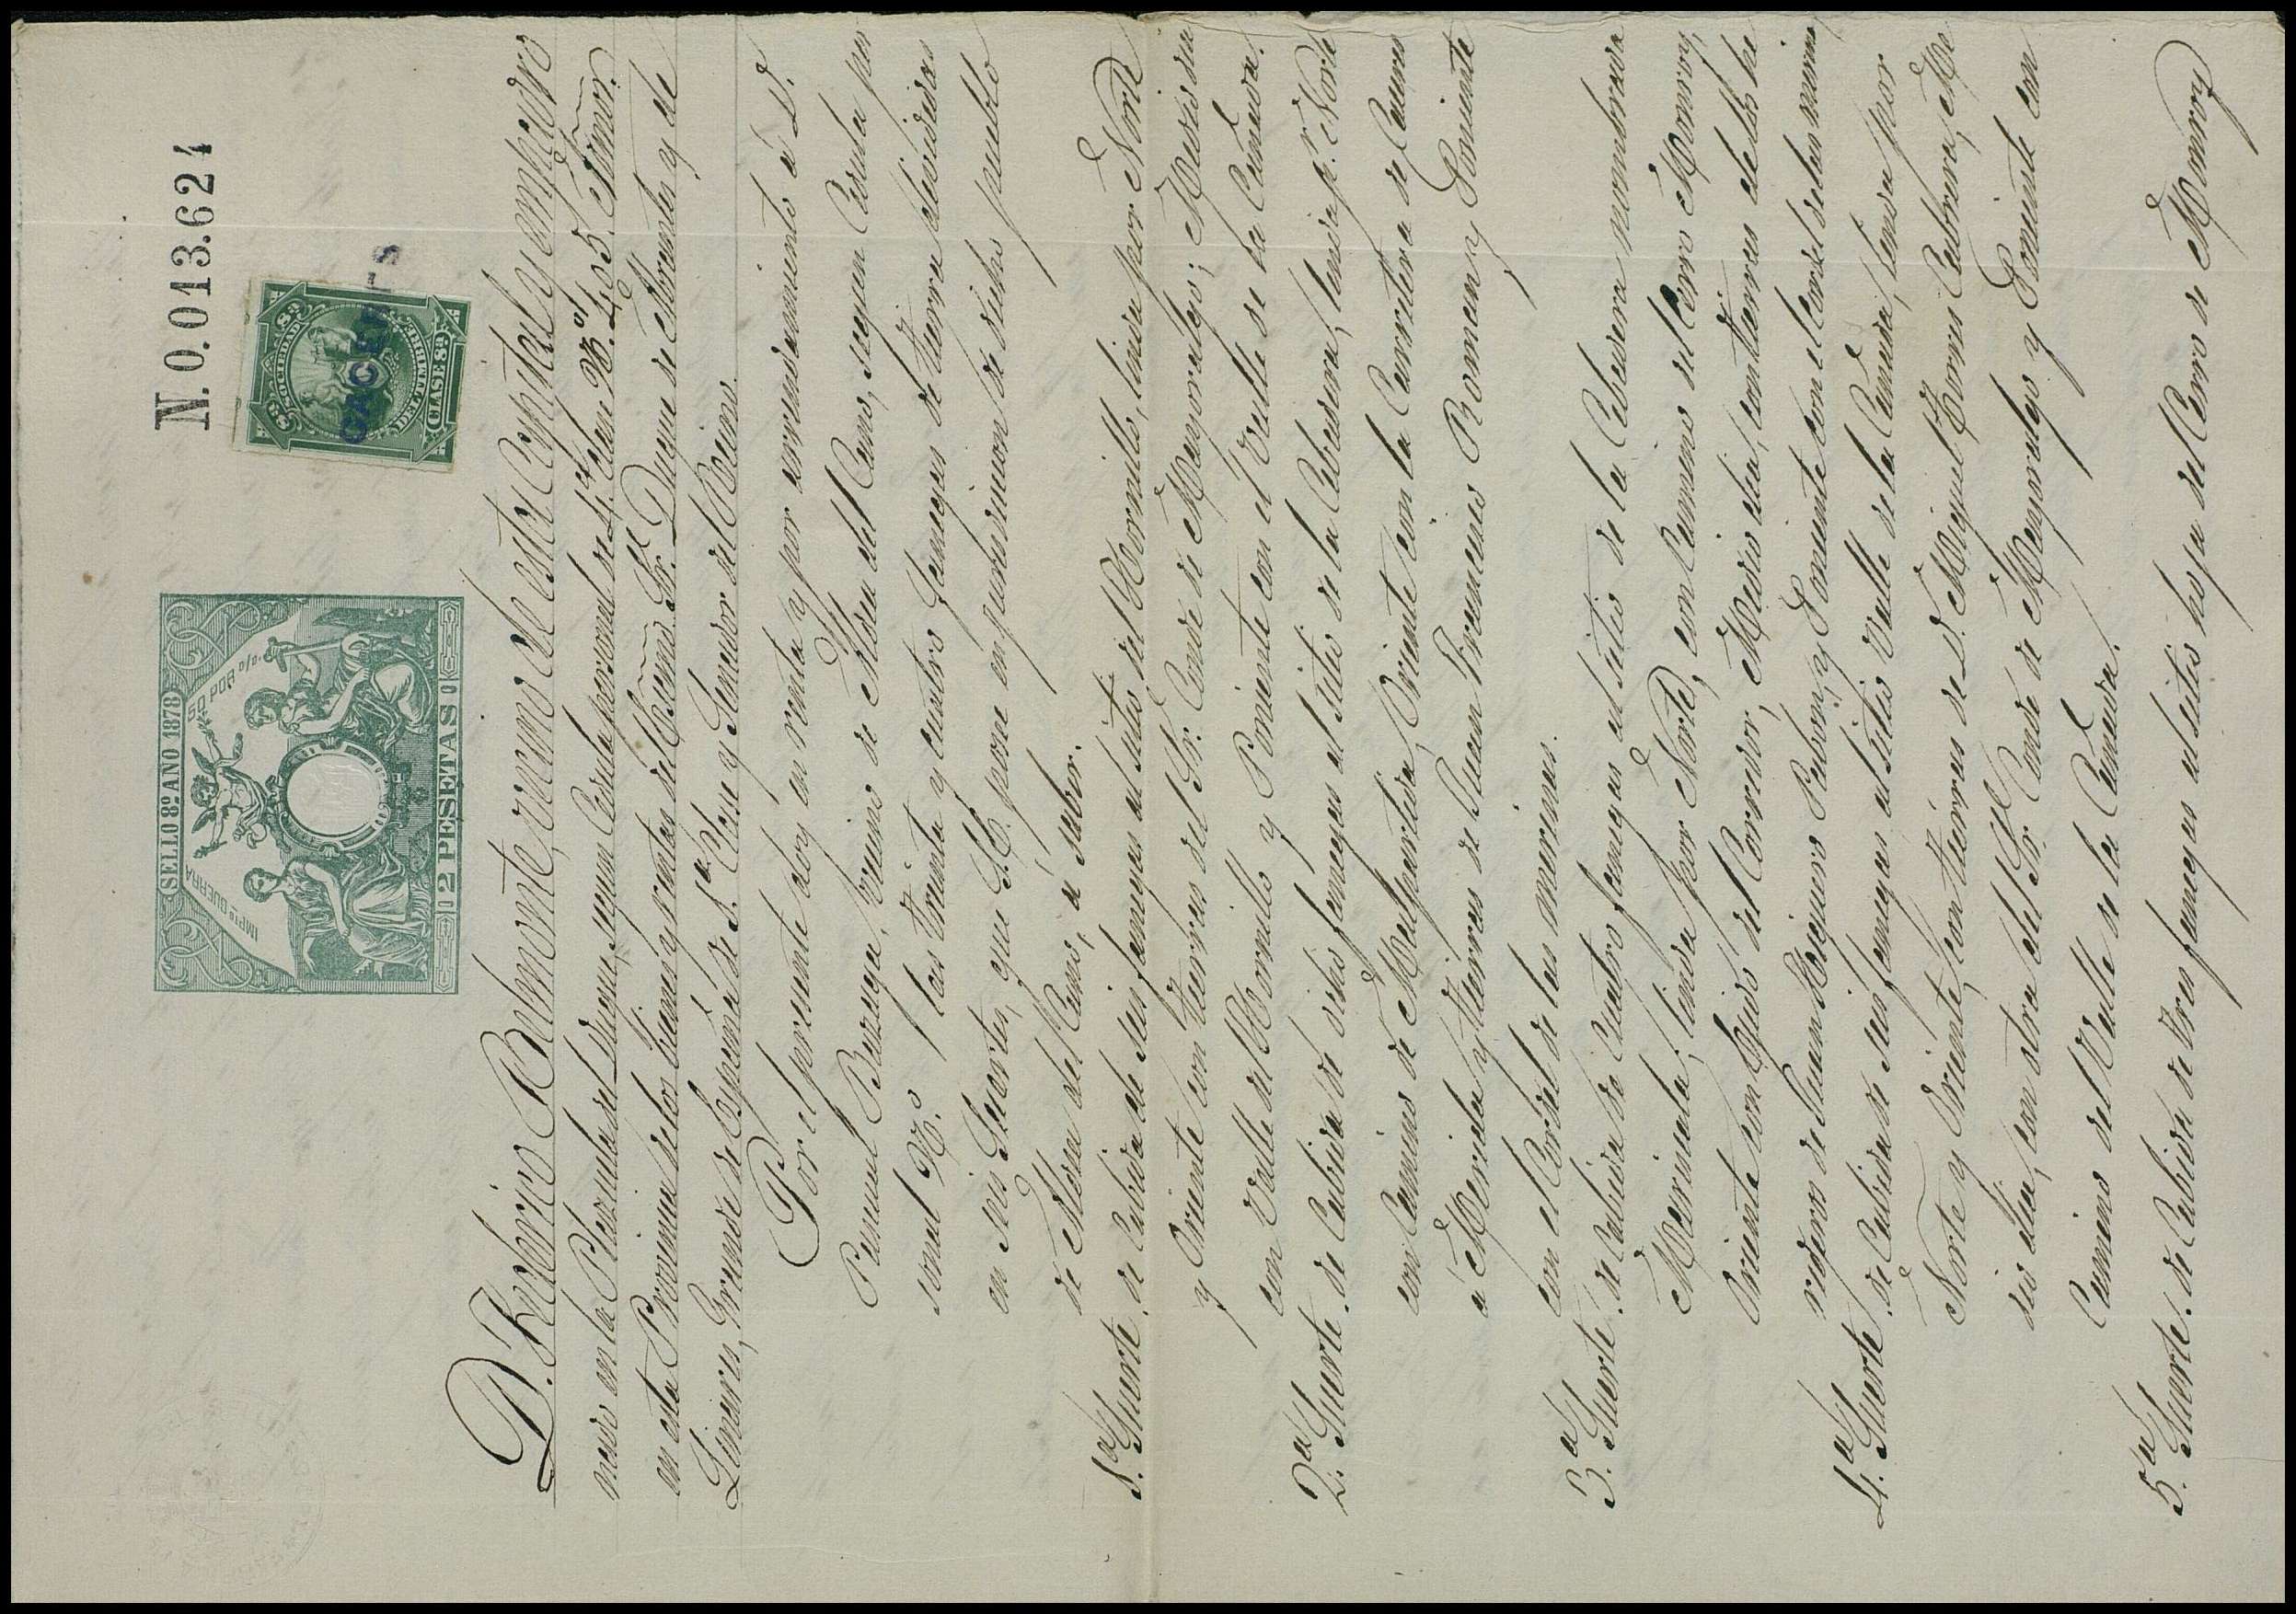 N. 0.013.624
SELLO 8º AÑO 1878
IMPTO GUERRA 50 POR %
2 PESETAS
SOCIEDAD
DEL TIMBRE
CLASE 8ª
CACERES
D. Federico Belmonte, vecino de esta Capital y empadro
nado en la Plazuela del Duque, segun Cedula personal de 4ª clase Nº 405. Admor.
en esta Provincia de los bienes y rentas del Excmo. Sr. Duque de Abrantes y de
Linares, Grande de España de 1ª Clase y Senador del Reino.
Por el presente doy en renta y por arrendamiento a D.
Manuel Barzaga, vecino de Aldea del Cano, segun Cedula per
sonal Nº. las treinta y cuatro fanegas de tierra divididas
en seis Suertes, que S.E. posee en jurisdiccion de dicho pueblo
de Aldea del Cano, a saber.
1ª Suerte. de Cabida de seis fanegas al sitio del Hornillo, linda por Norte
y Oriente con tierras del Sr. Conde de Mayoralgo; Mediodia
con Valle del Hornillo y Poniente con el Valle de la Cañada.
2ª Suerte. de Cabida de ocho fanegas al sitio de la Cabadera, linda p.r Norte
con Camino de Malpartida, Oriente con la Carretera de Caceres
a Merida y tierras de Juan Francisco Roman y Poniente
con el Cordel de las merinas.
3ª Suerte. de Cabida de Cuatro fanegas al sitio de la Cabadera nombrada
Merinada, linda por Norte, con Camino del Cerro Monroy,
Oriente con Egido del Corredor, Medio dia, con tierras de los he
rederos de Juan Higuero Pabon, y Poniente con el Cordel de las merinas
4ª Suerte. de Cabida de seis fanegas al sitio Valle de la Cañada, linda por
Norte y Oriente, con tierras de D. Miguel Torres Cabrera, Me
dio dia, con otra del Sr. Conde de Mayoralgo y Poniente con
Camino del Valle de la Cañada.
5ª Suerte. de Cabida de tres fanegas al sitio hoja del Cerro de Monroy